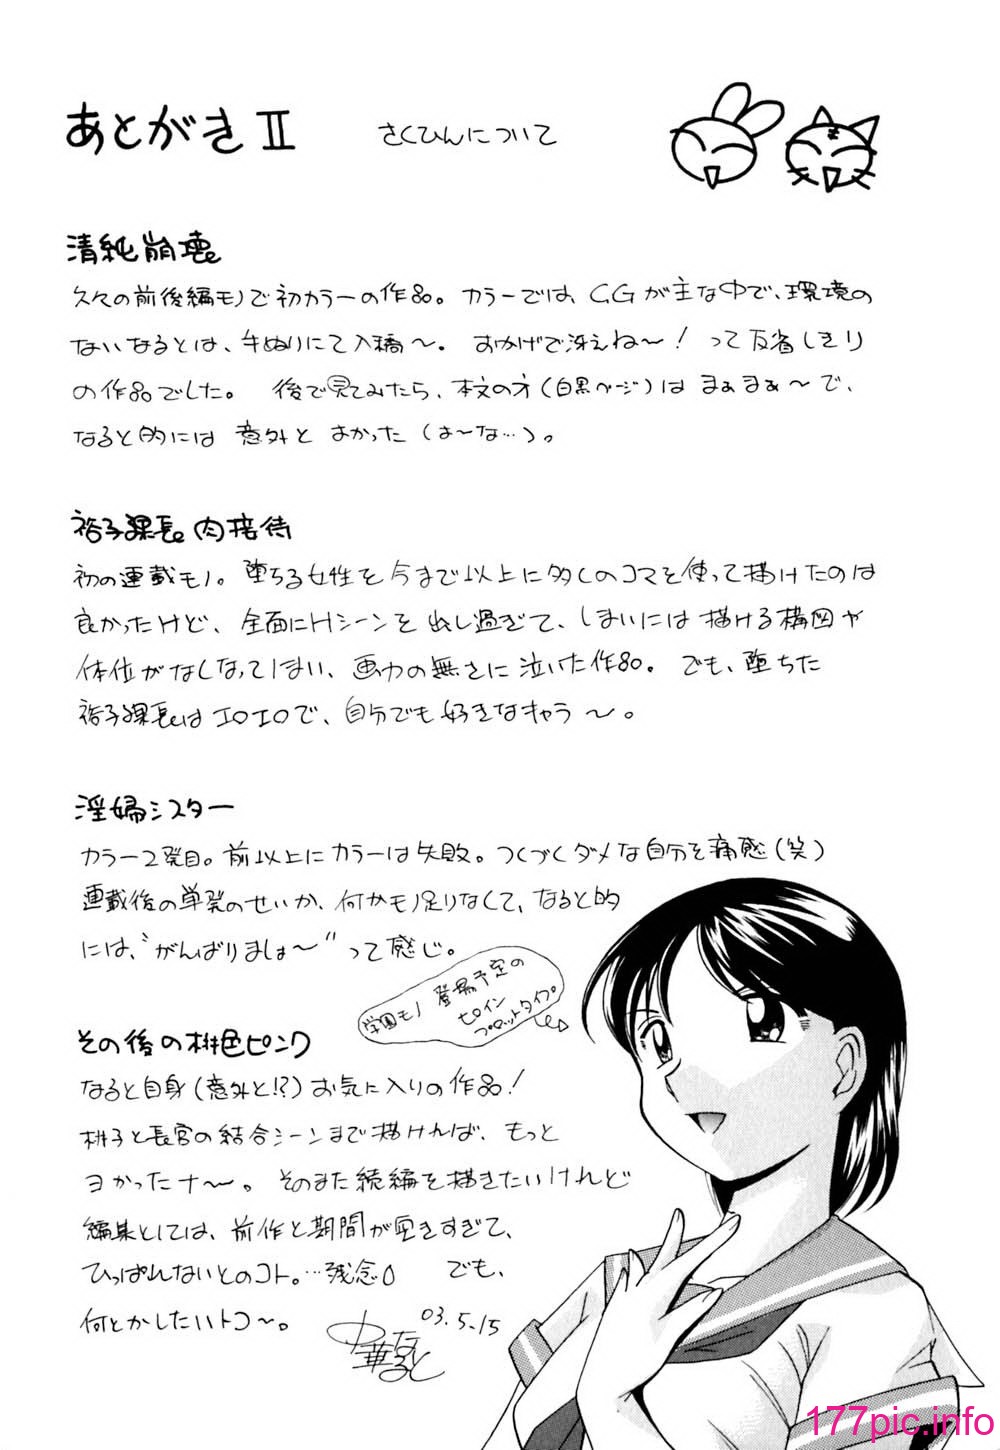 あとがきⅡ さくひんについて
清純崩壊。
久々の前後編モノで初カラーの作品。カラーでは、CGが主な中で、環境の
ないなるとは、手ぬりにて入稿〜。おかげで冴えね〜！って反省しきり
の作品でした。後で見てみたら、本文の方(白黒ページ)はまぁまぁ〜で、
なると的には意外とよかった(は〜な…)。
裕子課長。肉接待
初の連載モノ。堕ちる女性を今まで以上に多くのコマを使って描けたのは
良かったけど、全面にHシーンを出し過ぎて、しまいには描ける構図や
体位がなくなってしまい、画力の無さに泣いた作品。でも、堕ちた
裕子課長はエロエロで、自分でも好きなキャラ〜。
淫婦シスター
カラー2発目。前以上にカラーは失敗。つくづくダメな自分を痛感(笑)
連載後の単発のせいか、何かモノ足りなくて、なると的
には、"がんばりましょ〜"って感じ。
学園モノ登場予定の
ヒロイン
プロットタイプ。
その後の桃色ピンク
なると自身(意外と!?)お気に入りの作品！
桃子と長官の結合シーンまで描ければ、もっと
ヨかったナ〜。そのまた続編を描きたいけれど
編集としては、前作と期間が空きすぎて、
ひっぱれないとのコト。…残念 でも、
何とかしたいトコ〜。
中華なると 03.5.15
177pic.info